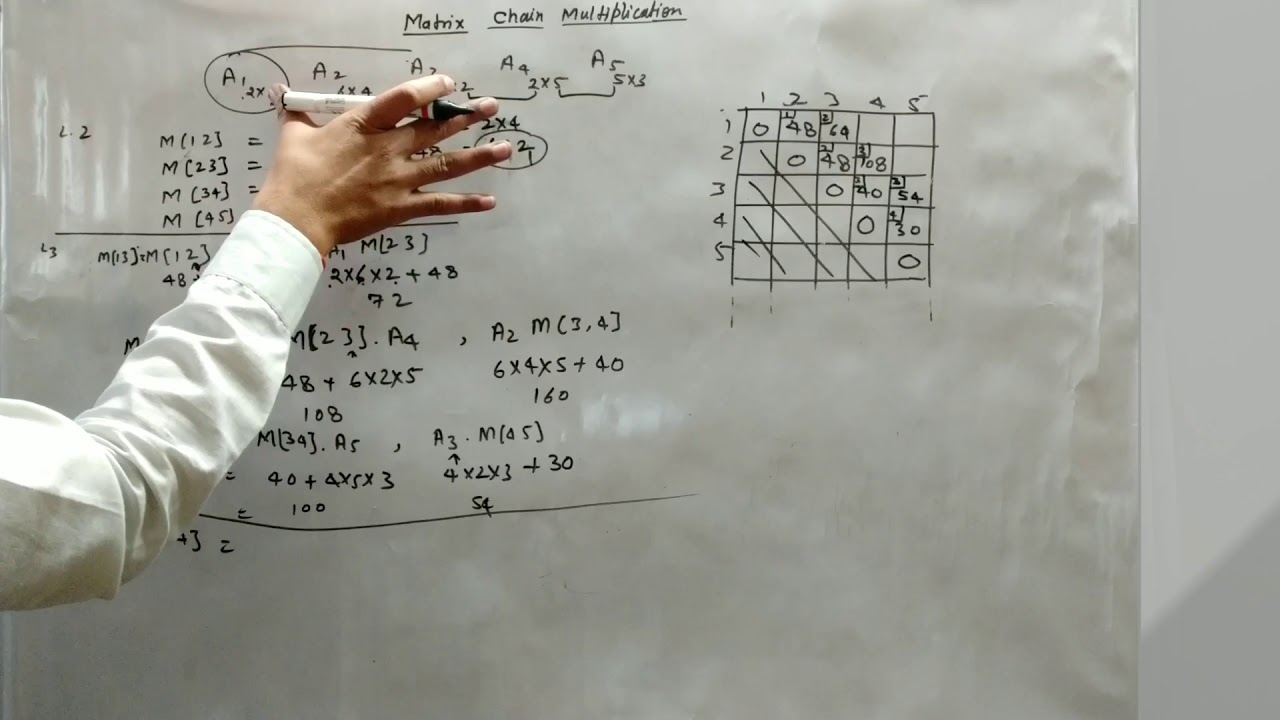 Matrix Chain Multiplication
A1 2× A2 6×4 A3 ×2 A4 2×5 A5 5×3
L.2
M[12] = = 2×4
M[23] = 48 =
M[34] =
M[45]
L3 M[13]=M[12] A1 M[23]
48 2×6×2+48
72
M[23].A4 , A2 M[3,4]
48 + 6×2×5 6×4×5+40
108 160
M[34].A5 , A3.M[45]
= 40+4×5×3 4×2×3+30
= 100 54
4] =
1 2 3 4 5
1 0 1] 48 2] 64
2 0 2] 48 3] 108
3 0 3] 40 3] 54
4 0 4] 30
5 0